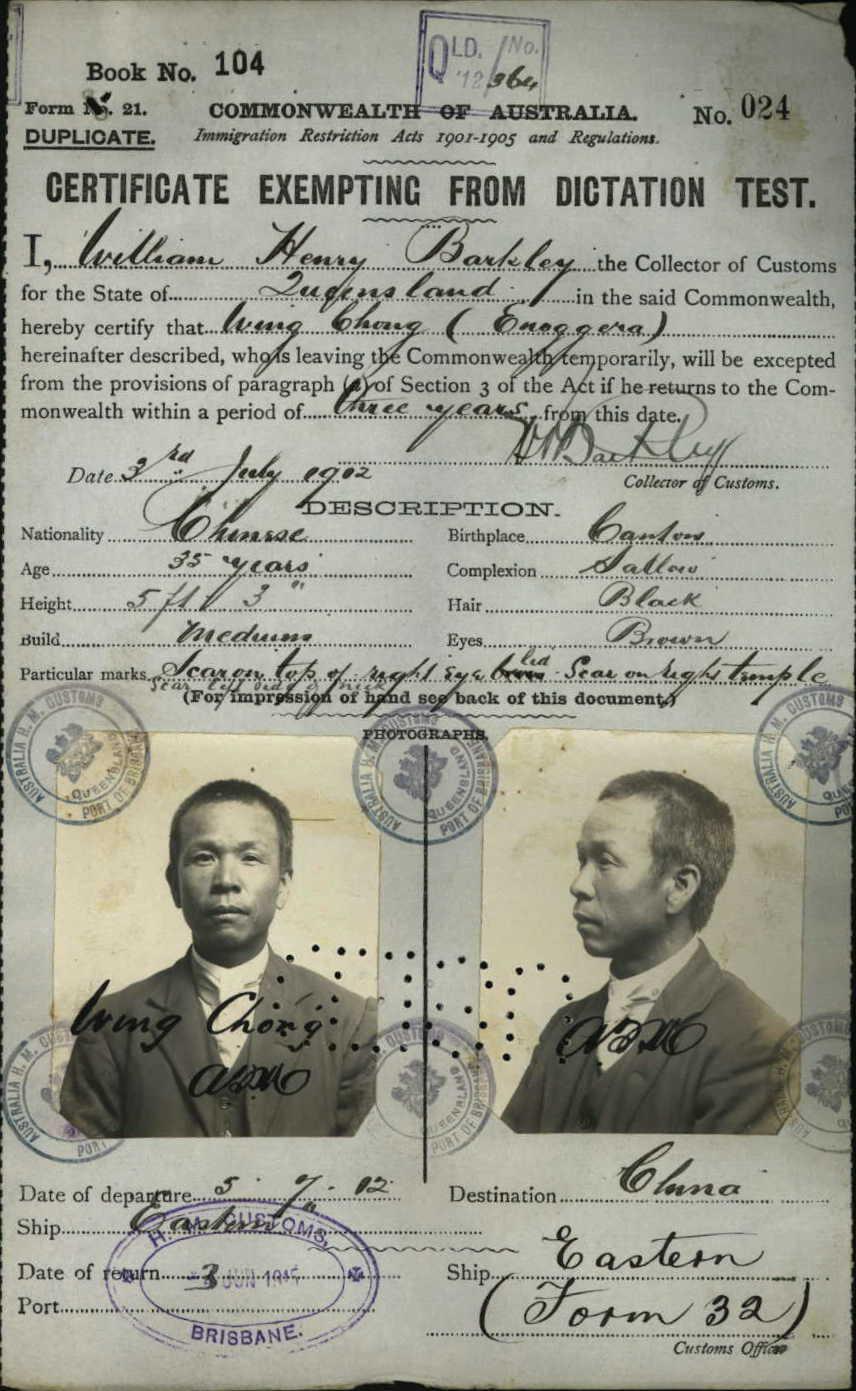 QLD. No.
'12 / 364
Book No. 104
Form No. 21.
COMMONWEALTH OF AUSTRALIA.
No. 024
DUPLICATE.
Immigration Restriction Acts 1901-1905 and Regulations.
CERTIFICATE EXEMPTING FROM DICTATION TEST.
I, William Henry Barkley the Collector of Customs
for the State of Queensland in the said Commonwealth,
hereby certify that Wing Chong (Enoggera)
hereinafter described, who is leaving the Commonwealth temporarily, will be excepted
from the provisions of paragraph (a) of Section 3 of the Act if he returns to the Com-
monwealth within a period of three years from this date.
W H Barkley
Date 3rd July 1912
Collector of Customs.
DESCRIPTION.
Nationality Chinese
Birthplace Canton
Age 35 years
Complexion Sallow
Height 5 ft 3"
Hair Black
Build Medium
Eyes Brown
Particular marks Scar on top of right eye lid Scar on right temple
Scar left side of
(For impression of hand see back of this document.)
PHOTOGRAPHS.
AUSTRALIA H. M. CUSTOMS
QUEENSLAND
PORT OF BRISBANE
AUSTRALIA H. M. CUSTOMS
QUEENSLAND
PORT OF BRISBANE
AUSTRALIA H. M. CUSTOMS
QU
PORT OF
Wing Chong
AUSTRALIA H. M. CUSTOMS
PORT
CUSTOMS
QUEENSLAND
PORT OF BRIS
CUSTOMS
Date of departure 5.7.12
Destination China
Ship Eastern
Date of return 3 JUN 1915
Ship Eastern
Port
H. M. CUSTOMS,
BRISBANE.
(Form 32)
Customs Officer